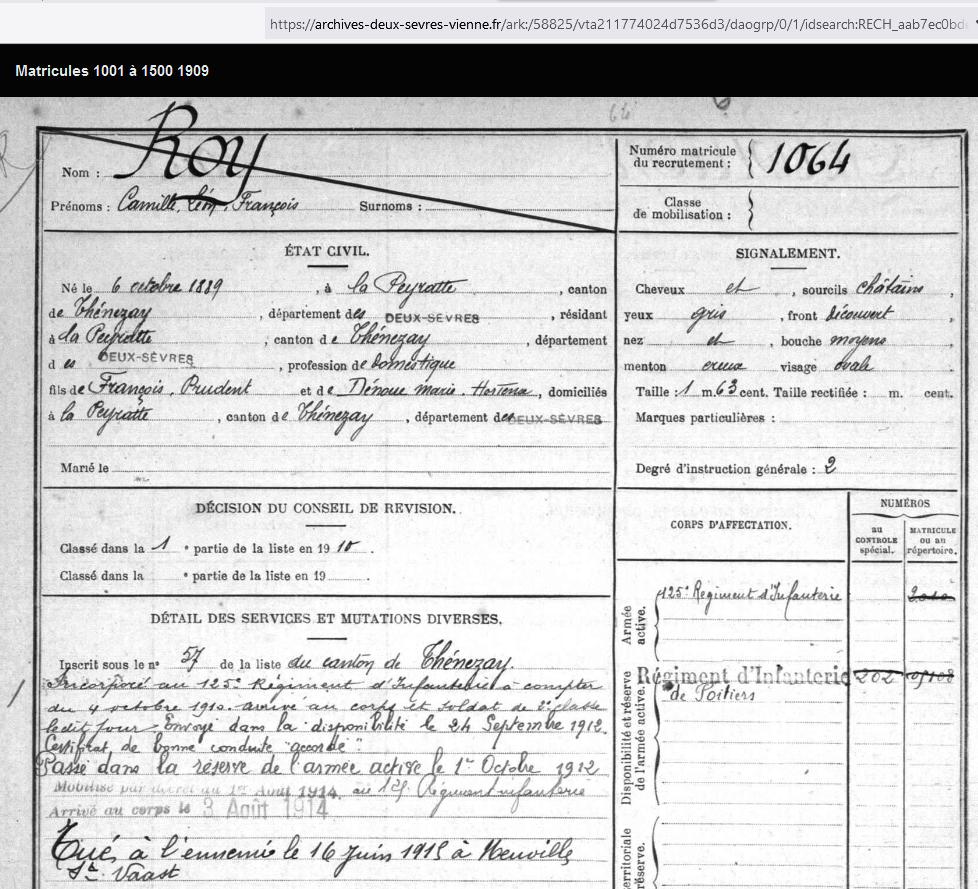 https://archives-deux-sevres-vienne.fr/ark:/58825/vta211774024d7536d3/daogrp/0/1/idsearch:RECH_aab7ec0bd
Matricules 1001 à 1500 1909
Nom : Roy
Prénoms : Camille, Léon, François Surnoms :
Numéro matricule du recrutement : 1064
Classe de mobilisation :
ÉTAT CIVIL.
Né le 6 octobre 1889, à la Peyratte, canton
de Thénezay, département des DEUX-SÈVRES, résidant
à La Peyratte, canton de Thénezay, département
des DEUX-SÈVRES, profession de domestique
fils de François, Prudent et de Dénoue Marie, Hortense, domiciliés
à la Peyratte, canton de Thénezay, département des DEUX-SÈVRES
Marié le
SIGNALEMENT.
Cheveux et, sourcils châtains,
yeux gris, front découvert,
nez et, bouche moyens
menton creux visage ovale
Taille : 1 m. 63 cent. Taille rectifiée : m. cent.
Marques particulières :
Degré d'instruction générale : 2
DÉCISION DU CONSEIL DE REVISION.
Classé dans la 1 e partie de la liste en 1910.
Classé dans la e partie de la liste en 19 .
CORPS D'AFFECTATION.
NUMÉROS
au CONTROLE spécial.
MATRICULE ou au répertoire.
Armée active.
125e Régiment d'Infanterie
Disponibilité et réserve de l'armée active.
Régiment d'Infanterie 202
de Poitiers
territoriale
réserve.
DÉTAIL DES SERVICES ET MUTATIONS DIVERSES.
Inscrit sous le n° 57 de la liste du canton de Thénezay.
Incorporé au 125e Régiment d'Infanterie à compter
du 4 octobre 1910. arrivé au corps et soldat de 2e classe
ledit jour. Envoyé dans la disponibilité le 24 Septembre 1912.
Certificat de bonne conduite "accordé".
Passé dans la réserve de l'armée active le 1er Octobre 1912
Mobilisé par décret du 1er Août 1914. au 125 Régiment infanterie
Arrivé au corps le 3 Août 1914
Tué à l'ennemi le 16 Juin 1915 à Neuville
St Vaast